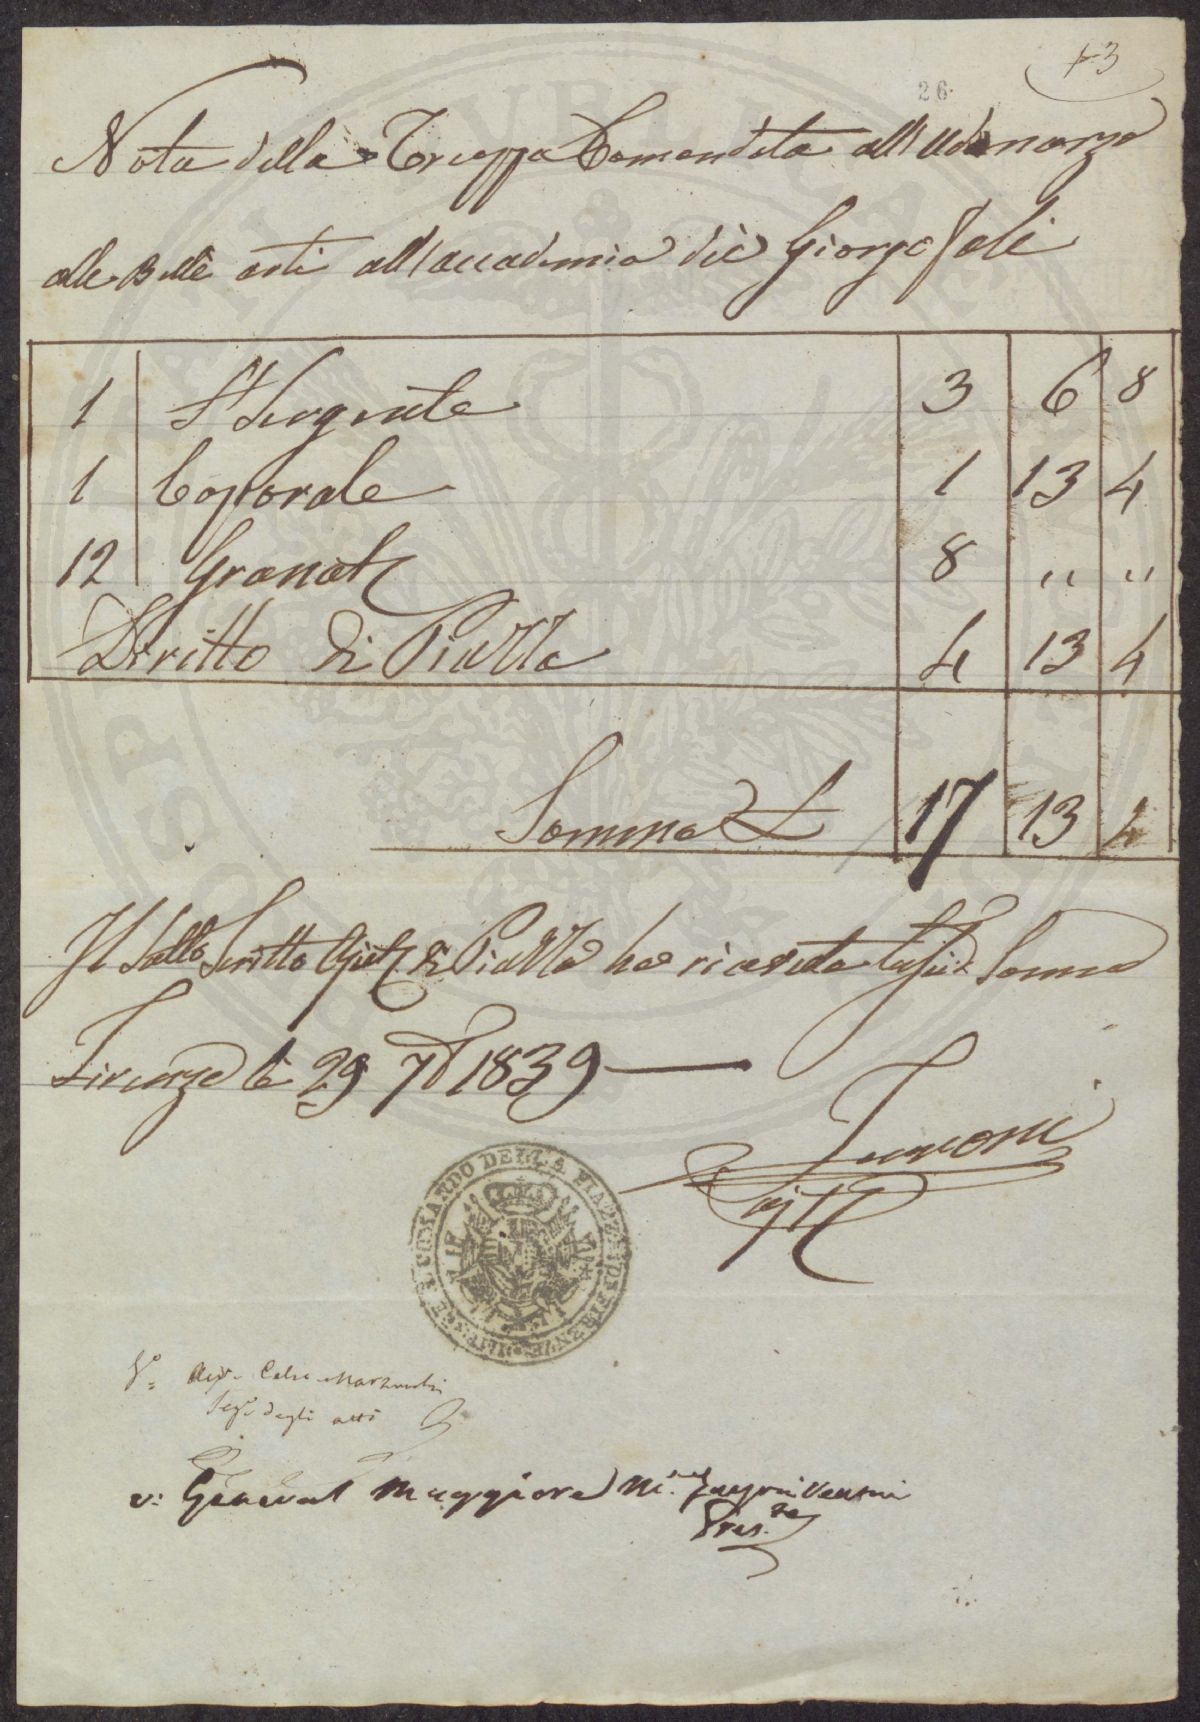 13
26
Nota della Truppa Comandata all'Udinanza
alle Belle arti all'accademia dei Giorgofoli
1 S. Sergente 3 6 8
1 Caporale 1 13 4
12 Granat 8 " "
Diritto di Piazza 4 13 4
Somma L 17 13 4
Il Sotto Scritto Ajut di Piazza ha riceuta la Somma
Firenze li 29 7b 1839
Ajt
COMANDO DELLA PIAZZA DI FIRENZE
V°
Seg° degli atti
v: General Maggiore
Pres.te